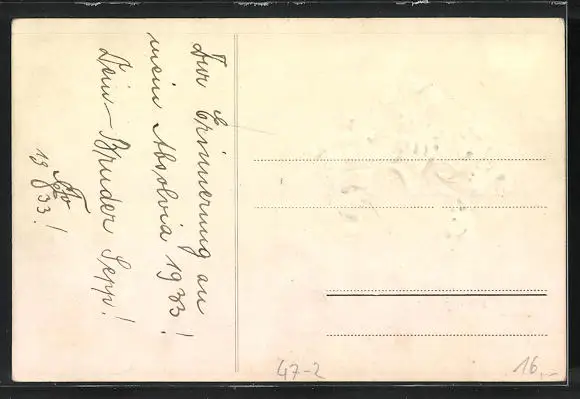 Zur Erinnerung an
mein Absolvia 1933!
Dein Bruder Sepp!
19 33!
47-2
16,-